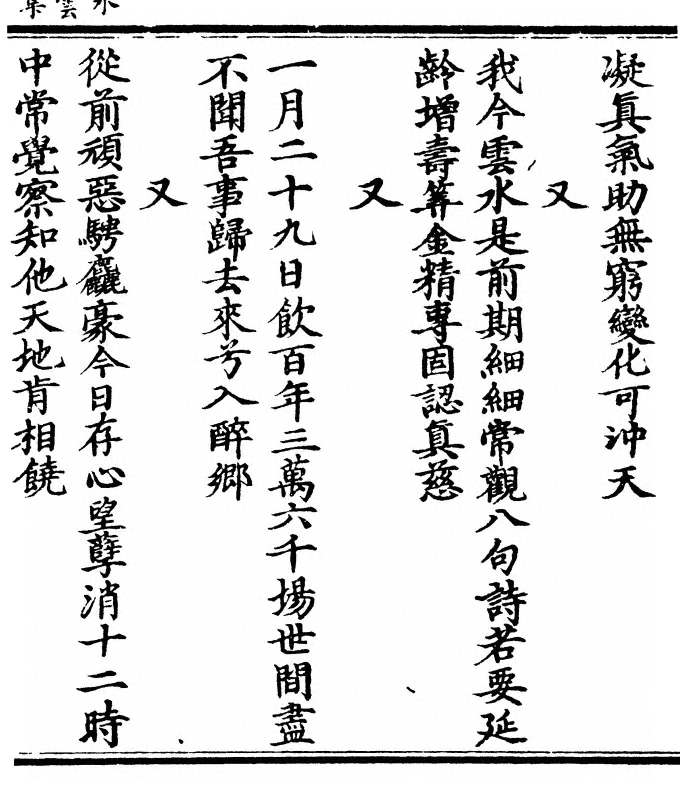 凝眞氣助無窮變化可沖天
又
我今雲水是前期細細常觀八句詩若要延
齡增壽筭金精專固認眞慈
又
一月二十九日飲百年三萬六千場世間盡
不聞吾事歸去來兮入醉鄉
又
從前頑惡騁麤豪今日存心望孽消十二時
中常覺察知他天地肯相饒